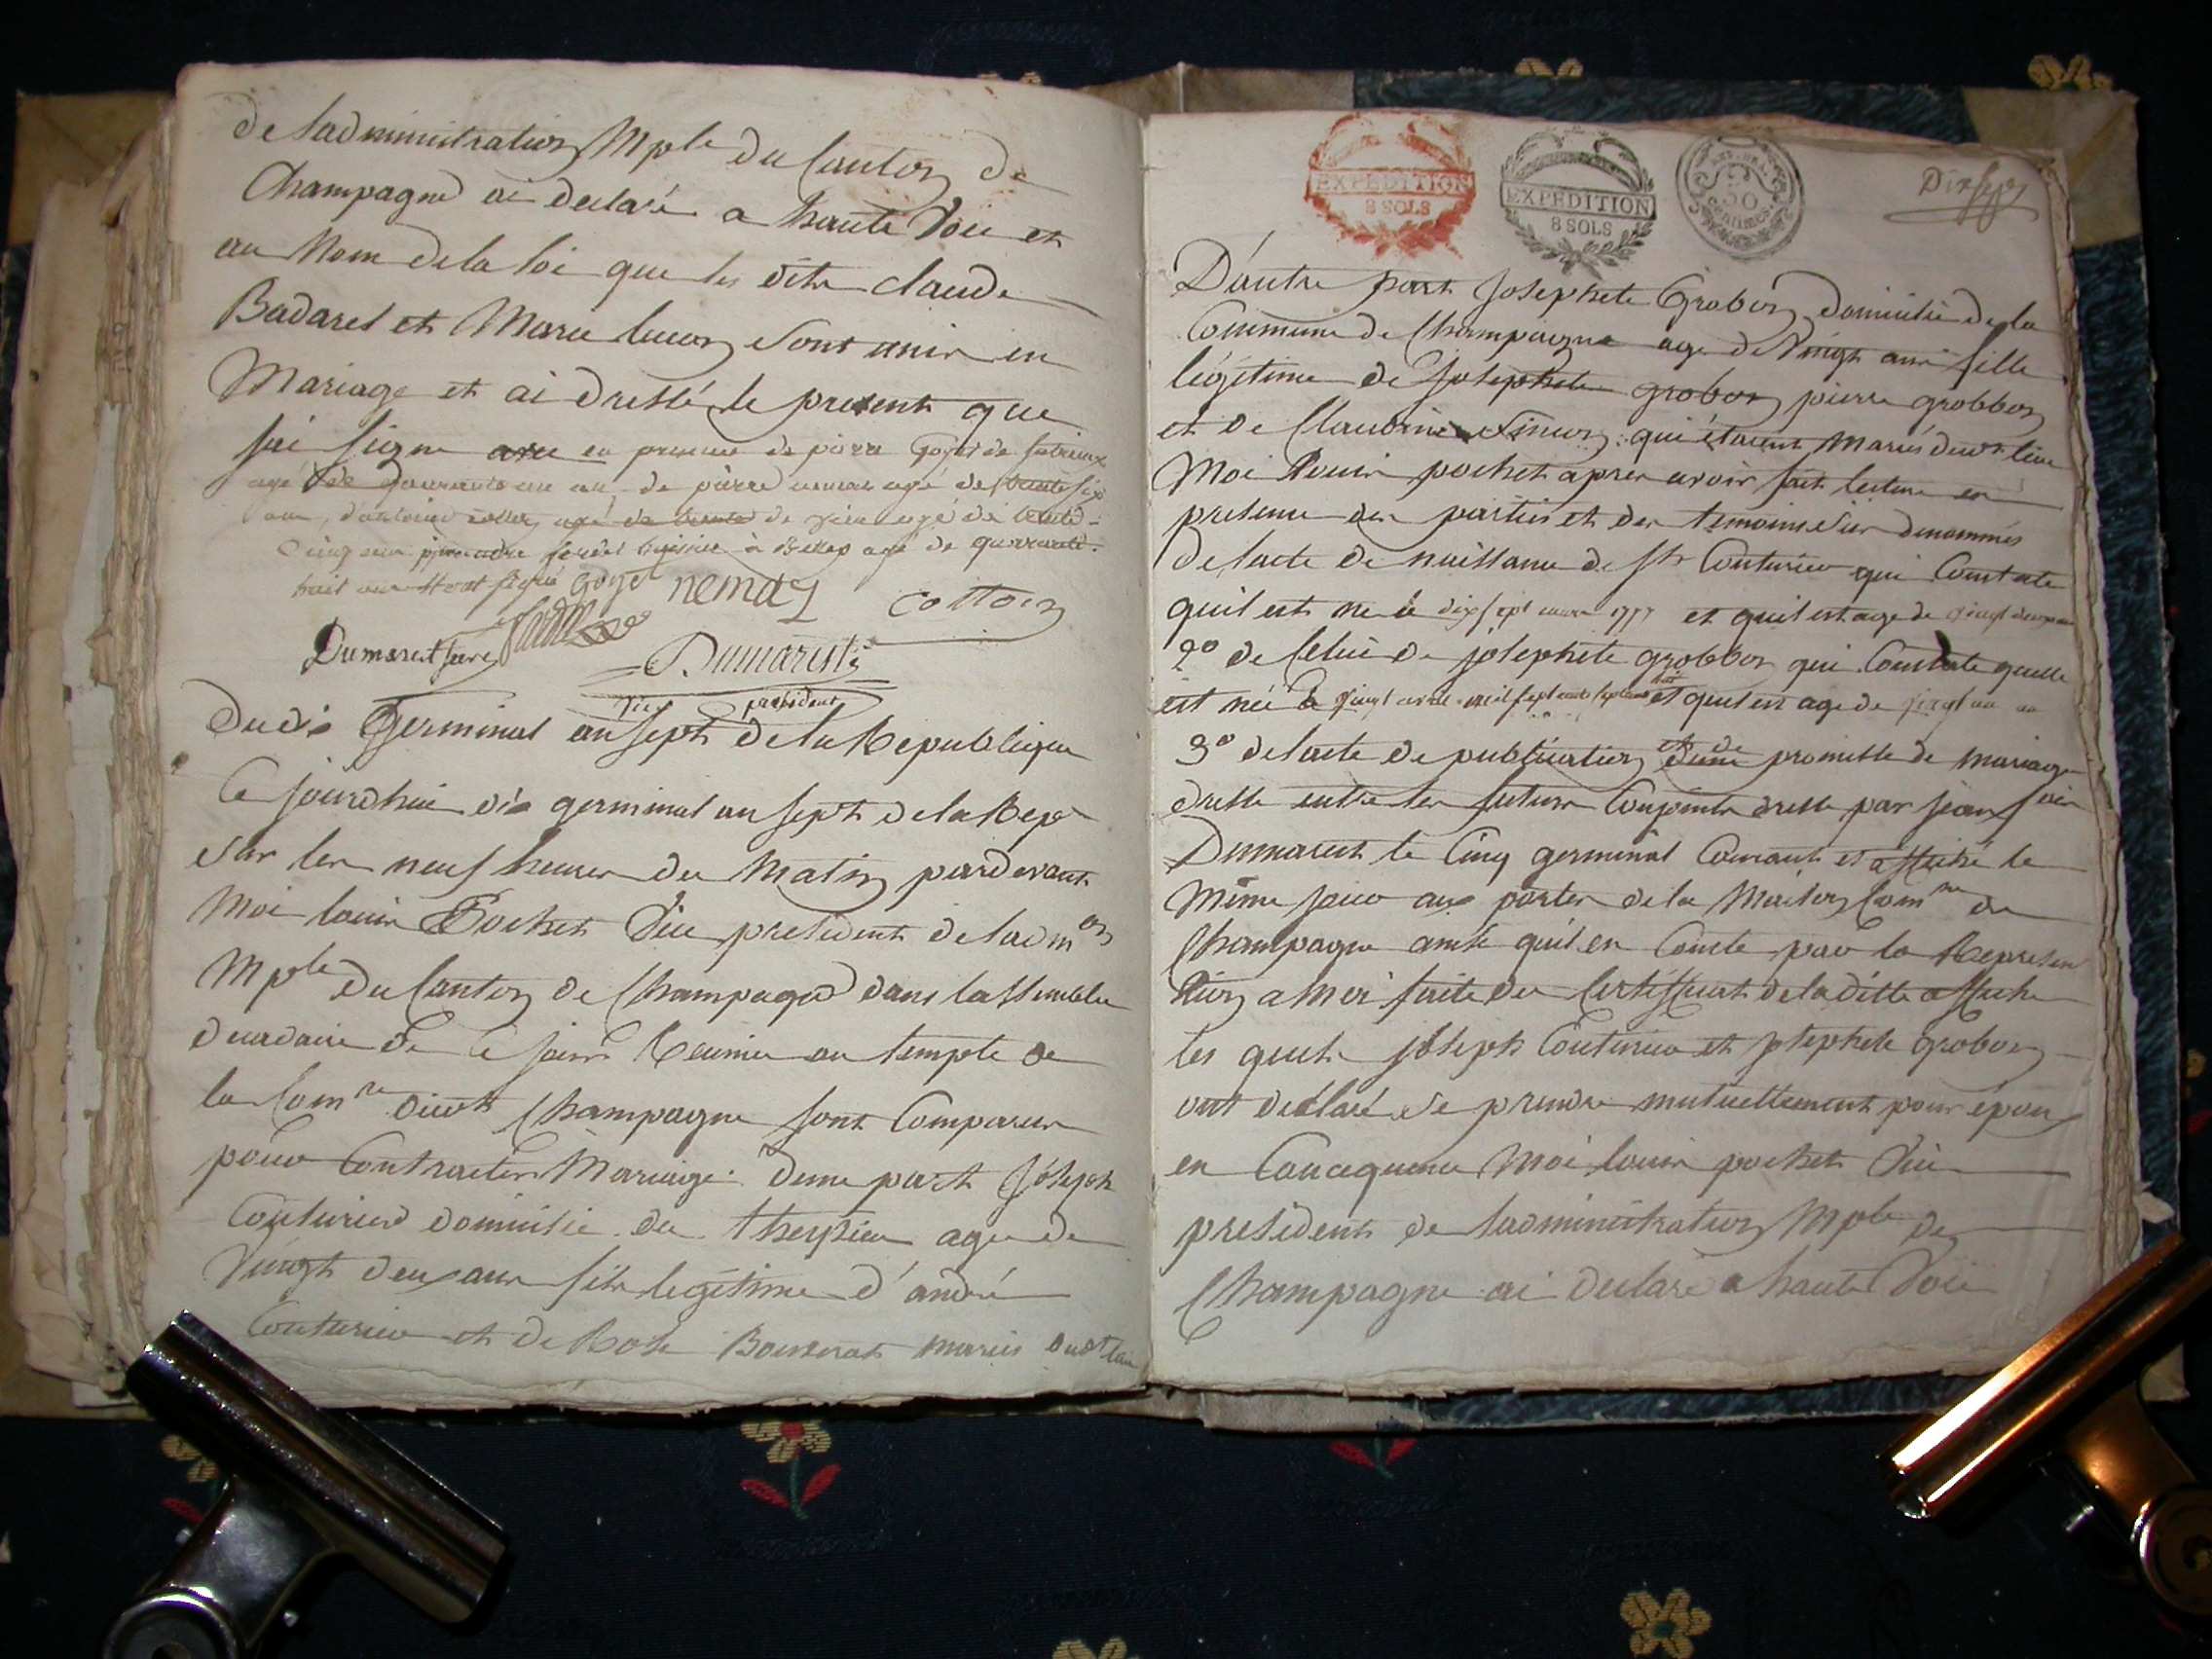 de ladministration Mple du Canton de
Champagne ai declaré a haute voie et
au Nom de la loi que les dits claude
Badaret et Marie lucon sont unis en
Mariage et ai dressé le present que
jai signe avec en presence de pierre Goyet de
agé de quarante un ans, de pierre nemoz agé de trente six
ans, dantoine agé de trente
Cinq ans à Belley agé de quarante
huit ans Goyet nemoz
Cottoin
Dumarest
Dumarest
vice president
Du dix Germinal an sept de la Republique
Ce jourdhui dix germinal an sept de la Repe
sur les neuf heures du Matin pardevant
Moi louis Pochet vice president de ladmon
Mple du Canton de Champagne dans lassemblee
decadaire de ce jour Reunie au temple de
la Comne dudt Champagne sont Comparus
pour Contracter Mariage. dune part Joseph
Couturier domicilie de theyzieu age de
Vingt deux ans fils legitime d'andré
Couturier et de Rose mariés dudt lieu
EXPEDITION
8 SOLS
EXPEDITION
8 SOLS
50
CENTIMES
Dix sept
D'autre part Josephete Grobon domicilié de la
Commune de Champagne age de Vingt ans fille
légitime de Josephete grobon pierre grobbon
et de Claudine qui étaient Mariés dudt lieu
Moi Louis pochet apres avoir fait lecture en
presence des parties et des temoins denommés
de lacte de naissance de Jh Couturier qui Constate
quil est ne le dix sept 1777 et quil est age de vingt deux ans
2o de Celui de josephete grobbon qui Constate quelle
est née le vingt avril mil sept cent septante huit et quel est age de vingt un an
3o de lacte de publication et de dune promesse de mariage
dresse entre les futurs Conjoints dresse par jean fois
Dumarest le Cinq germinal Courant et affiché le
Même jour aux portes de la Maison Comne de
Champagne ainsi quil en Conste par la Represen
tion a Moi faite du Certifficat de la ditte affiche
les quels joseph Couturier et josephete Grobon
ont déclaré se prendre mutuellement pour époux
en Concequence Moi louis pochet vice
president de ladministration Mple de
Champagne ai declaré a haute Voie